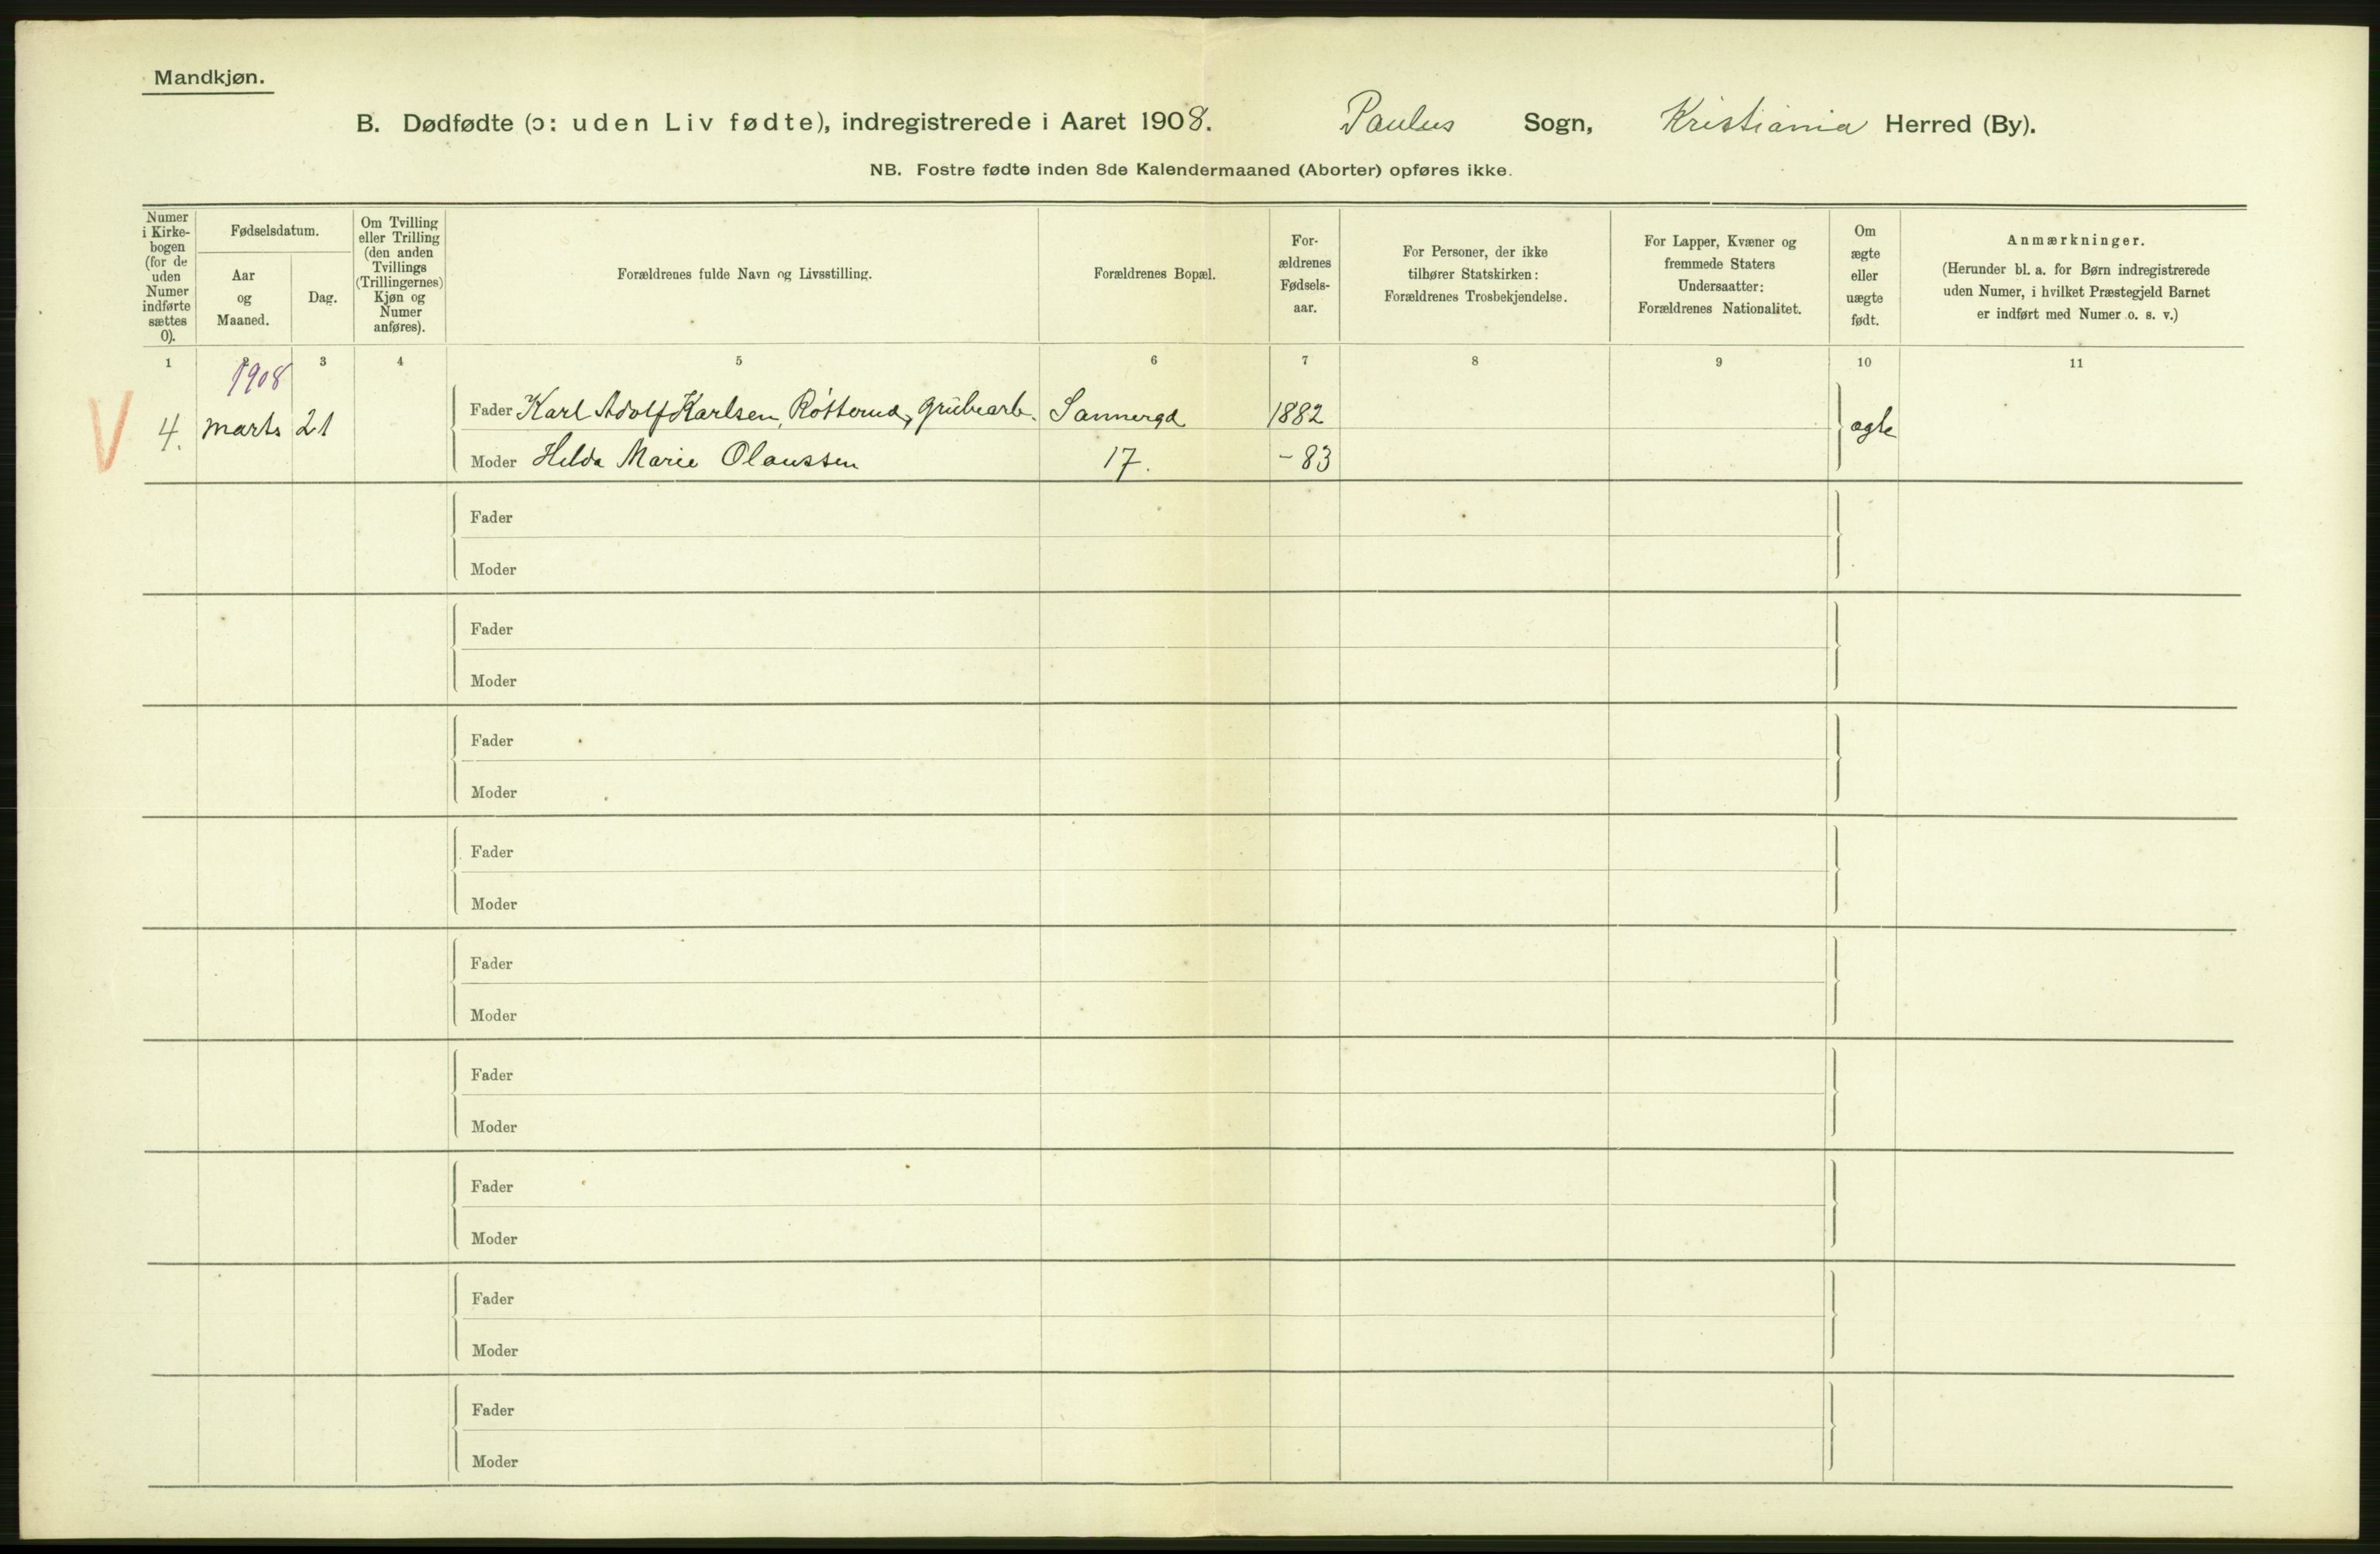 Mandkjøn.
B. Dødfødte (ɔ: uden Liv fødte), indregistrerede i Aaret 1908. Paulus Sogn, Kristiania Herred (By).
NB. Fostre fødte inden 8de Kalendermaaned (Aborter) opføres ikke.
Numer
i Kirke-
bogen
(for de
uden
Numer
indførte
sættes
0).
Fødselsdatum.
Aar
og
Maaned.
Dag.
Om Tvilling
eller Trilling
(den anden
Tvillings
(Trillingernes)
Kjøn og
Numer
anføres).
Forældrenes fulde Navn og Livsstilling.
Forældrenes Bopæl.
For-
ældrenes
Fødsels-
aar.
For Personer, der ikke
tilhører Statskirken:
Forældrenes Trosbekjendelse.
For Lapper, Kvæner og
fremmede Staters
Undersaatter:
Forældrenes Nationalitet.
Om
ægte
eller
uægte
født.
Anmærkninger.
(Herunder bl. a. for Børn indregistrerede
uden Numer, i hvilket Præstegjeld Barnet
er indført med Numer o. s. v.)
1 2 3 4 5 6 7 8 9 10 11
1908
V 4. marts 21
Fader Karl Adolf Karlsen, Røtterud, Grubearb. Sannergd 1882
ægte
Moder Hilda Marie Olaussen 17. - 83
Fader
Moder
Fader
Moder
Fader
Moder
Fader
Moder
Fader
Moder
Fader
Moder
Fader
Moder
Fader
Moder
Fader
Moder